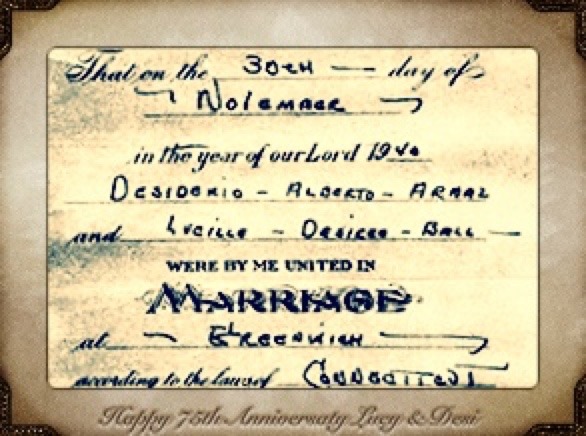 That on the 30th day of
November
in the year of our Lord 1940
Desiderio - Alberto - Arnaz
and Lucille - Desiree - Ball
WERE BY ME UNITED IN
MARRIAGE
at Greenwich
according to the laws of Connecticut
Happy 75th Anniversaty Lucy & Desi